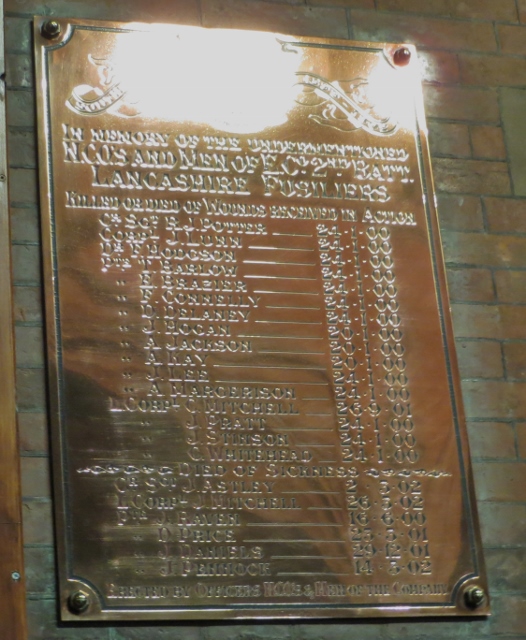 IN MEMORY OF THE UNDERMENTIONED
N.C.O'S AND MEN OF E. CO. 2ND BATTN.
LANCASHIRE FUSILIERS
KILLED OR DIED OF WOUNDS RECEIVED IN ACTION
CR SGT R.J. POTTER 24.1.00
CORPL J. LUNN 24.1.00
HODGSON 24.1.00
PTE BARLOW 24.1.00
" FRAZIER 24.1.00
" F. CONNELLY 24.1.00
" D. DELANEY 24.1.00
" J. HOGAN 20.1.00
" A. JACKSON 24.1.00
" A. KAY 20.1.00
" J. LEE 24.1.00
" A. MARGERISON 24.1.00
L. CORPL C. MITCHELL 26.9.01
" J. PRATT 24.1.00
" J. STINSON 24.1.00
" C. WHITEHEAD 24.1.00
DIED OF SICKNESS
CR SGT J. ASTLEY
L. CORPL J. MITCHELL 26.3.02
PTE J. HAVEN 16.6.00
" D. PRICE 25.5.01
" J. DANIELS 29.12.01
" J. PENNOCK 14.3.02
ERECTED BY OFFICERS N.C.O'S & MEN OF THE COMPANY